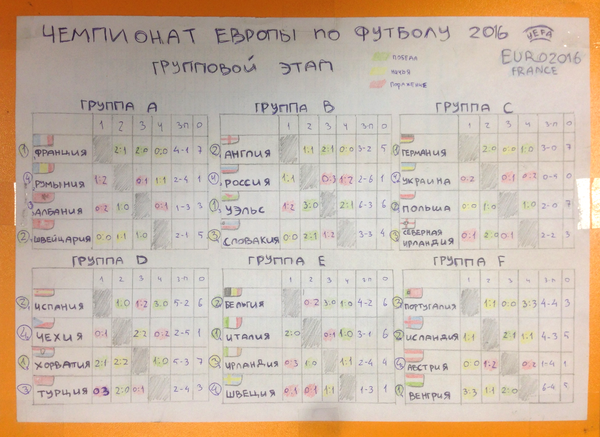 ЧЕМПИОНАТ ЕВРОПЫ ПО ФУТБОЛУ 2016 UEFA
EURO2016
FRANCE
ГРУППОВОЙ ЭТАП
ПОБЕДА
НИЧЬЯ
ПОРАЖЕНИЕ
ГРУППА A
1 2 3 4 З-П О
1 ФРАНЦИЯ 2:1 2:0 0:0 4-1 7
4 РУМЫНИЯ 1:2 0:1 1:1 2-4 1
3 АЛБАНИЯ 0:2 1:0 0:1 1-3 3
2 ШВЕЙЦАРИЯ 0:0 1:1 1:0 2-1 5
ГРУППА B
1 2 3 4 З-П О
2 АНГЛИЯ 1:1 2:1 0:0 3-2 5
4 РОССИЯ 1:1 0:3 1:2 2-6 1
1 УЭЛЬС 1:2 3:0 2:1 6-3 6
3 СЛОВАКИЯ 0:0 2:1 1:2 3-3 4
ГРУППА C
1 2 3 4 З-П О
ГЕРМАНИЯ 2:0 0:0 1:0 3-0 7
4 УКРАИНА 0:2 0:1 0:2 0-4 0
2 ПОЛЬША 0:0 1:0 1:0 2-0 7
3 СЕВЕРНАЯ
ИРЛАНДИЯ 0:1 2:0 0:1 2-2 3
ГРУППА D
1 2 3 4 З-П О
2 ИСПАНИЯ 1:0 1:2 3:0 5-2 6
4 ЧЕХИЯ 0:1 2:2 0:2 2-5 1
1 ХОРВАТИЯ 2:1 2:2 1:0 5-3 7
3 ТУРЦИЯ 0:3 2:0 0:1 2-4 3
ГРУППА E
1 2 3 4 З-П О
2 БЕЛЬГИЯ 0:2 3:0 1:0 4-2 6
1 ИТАЛИЯ 2:0 0:1 1:0 3-1 6
3 ИРЛАНДИЯ 0:3 1:0 1:1 2-4 4
4 ШВЕЦИЯ 0:1 0:1 1:1 1-3 1
ГРУППА F
1 2 3 4 З-П О
3 ПОРТУГАЛИЯ 1:1 0:0 3:3 4-4 3
2 ИСЛАНДИЯ 1:1 2:1 1:1 4-3 5
4 АВСТРИЯ 0:0 1:2 0:2 1-4 1
1 ВЕНГРИЯ 3:3 1:1 2:0 6-4 5